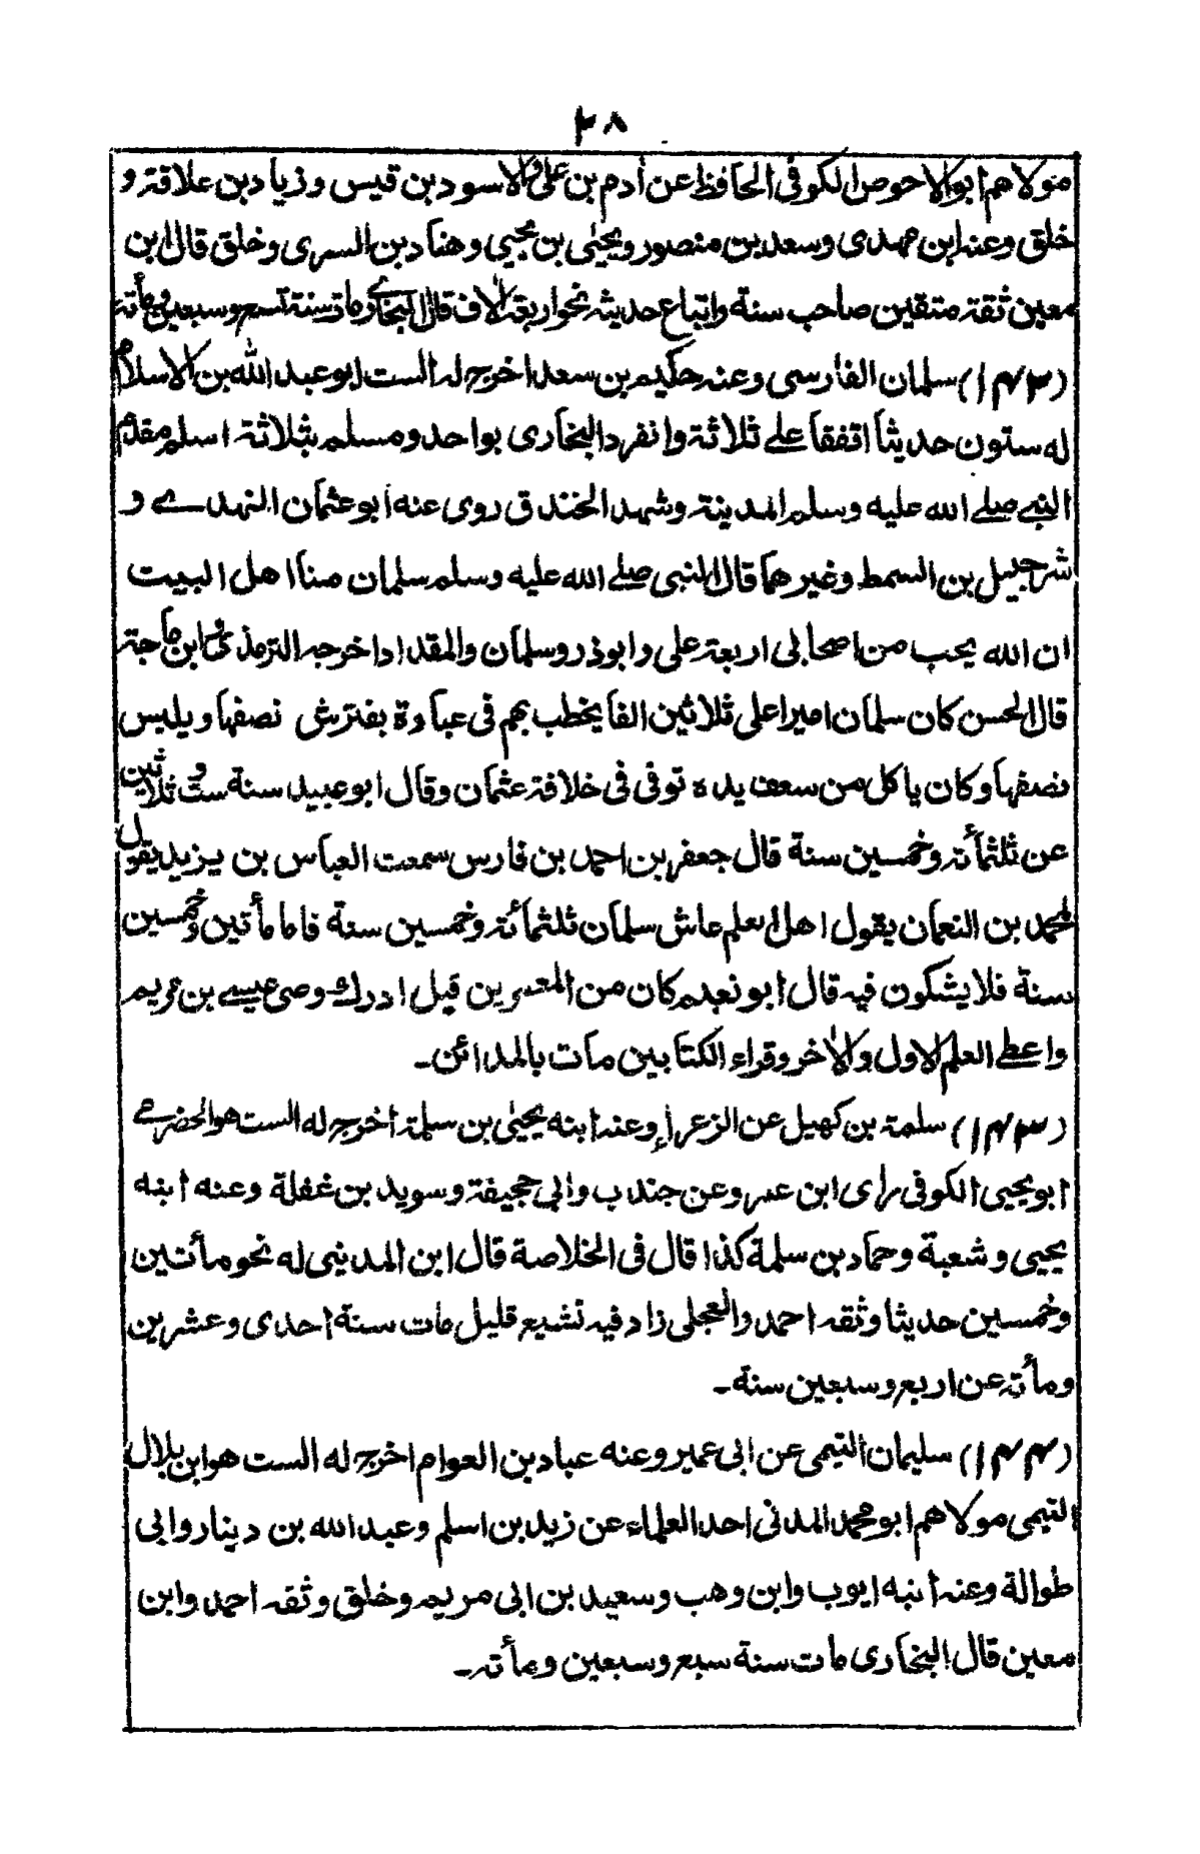 ٢٨
مولاهم ابوالاحوص الكوفى الحافظ عن أدم بن على والاسود بن قيس وزياد بن علاقة و
خلق وعنه ابن مهدى وسعد بن منصور ويحيٰى بن يحيي وهناد بن السرى وخلق قال ابن
معين ثقة متقين صاحب سنة واتباع حديثه نحو اربعة ألاف قال البخارے مات سنة تسع وسبعين ومأته
(١٤٢) سلمان الفارسى وعنه حكيم بن سعد اخرج له الست ابو عبد الله بن الاسلام
له ستون حديثا اتفقا علے ثلاثة وانفرد البخارى بواحد ومسلم بثلاثة اسلم مقدم
النبے صلے الله عليه وسلم المدينة وشهد الخندق روى عنه ابو عثمان النهدے و
شرجيل بن السمط وغيرهما قال النبى صلے الله عليه وسلم سلمان منا اهل البيت
ان الله يحب من اصحابى اربعة على وابوذر وسلمان والمقداد اخرجه الترمذى وابن ماجة
قال الحسن كان سلمان اميرا على ثلاثين الفا يخطب بهم فى عباءة يفترش نصفها ويلبس
نصفها وكان ياكل من سعف يده توفى فى خلافة عثمان وقال ابو عبيد سنة ست وثلاثين
عن ثلثمأته وخمسين سنة قال جعفر بن احمد بن فارس سمعت العباس بن يزيد يقول
لمحمد بن النعمان يقول اهل العلم عاش سلمان ثلثمائة وخمسين سنة فاما مأتين وخمسين
سنة فلا يشكون فيه قال ابو نعيم كان من المعمرين قيل ادرك وصى عيسے بن مريم
واعطے العلم الاول والأخر وقراء الكتابين مات بالمدائن۔
(١٤٣) سلمة بن كهيل عن الزعراء وعنه ابنه يحيٰى بن سلمة اخرج له الست هو الحضرمے
ابو يحيى الكوفى راى ابن عمر وعن جندب وابى جحيفة وسويد بن غفلة وعنه ابنه
يحيي وشعبة وحماد بن سلمة كذا قال فى الخلاصة قال ابن المدينى له نحو مأتين
وخمسين حديثا وثقه احمد والعجلى زاد فيه تشيع قليل مات سنة احدى وعشرين
ومأته عن اربع وسبعين سنة۔
(١٤٤) سليمان التيمى عن ابى عمير وعنه عباد بن العوام اخرج له الست هو ابن بلال
التيمى مولاهم ابو محمد المدنى احد العلماء عن زيد بن اسلم وعبد الله بن دينار وابى
طوالة وعنه ابنه ايوب وابن وهب وسعيد بن ابى مريم وخلق وثقه احمد وابن
معين قال البخارى مات سنة سبع وسبعين ومأته۔